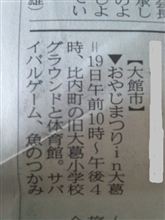 【大館市】
▼おやじまつりin大葛
=19日午前10時~午後4
時、比内町の旧大葛小学校
グラウンドと体育館。サバ
イバルゲーム、魚のつかみ